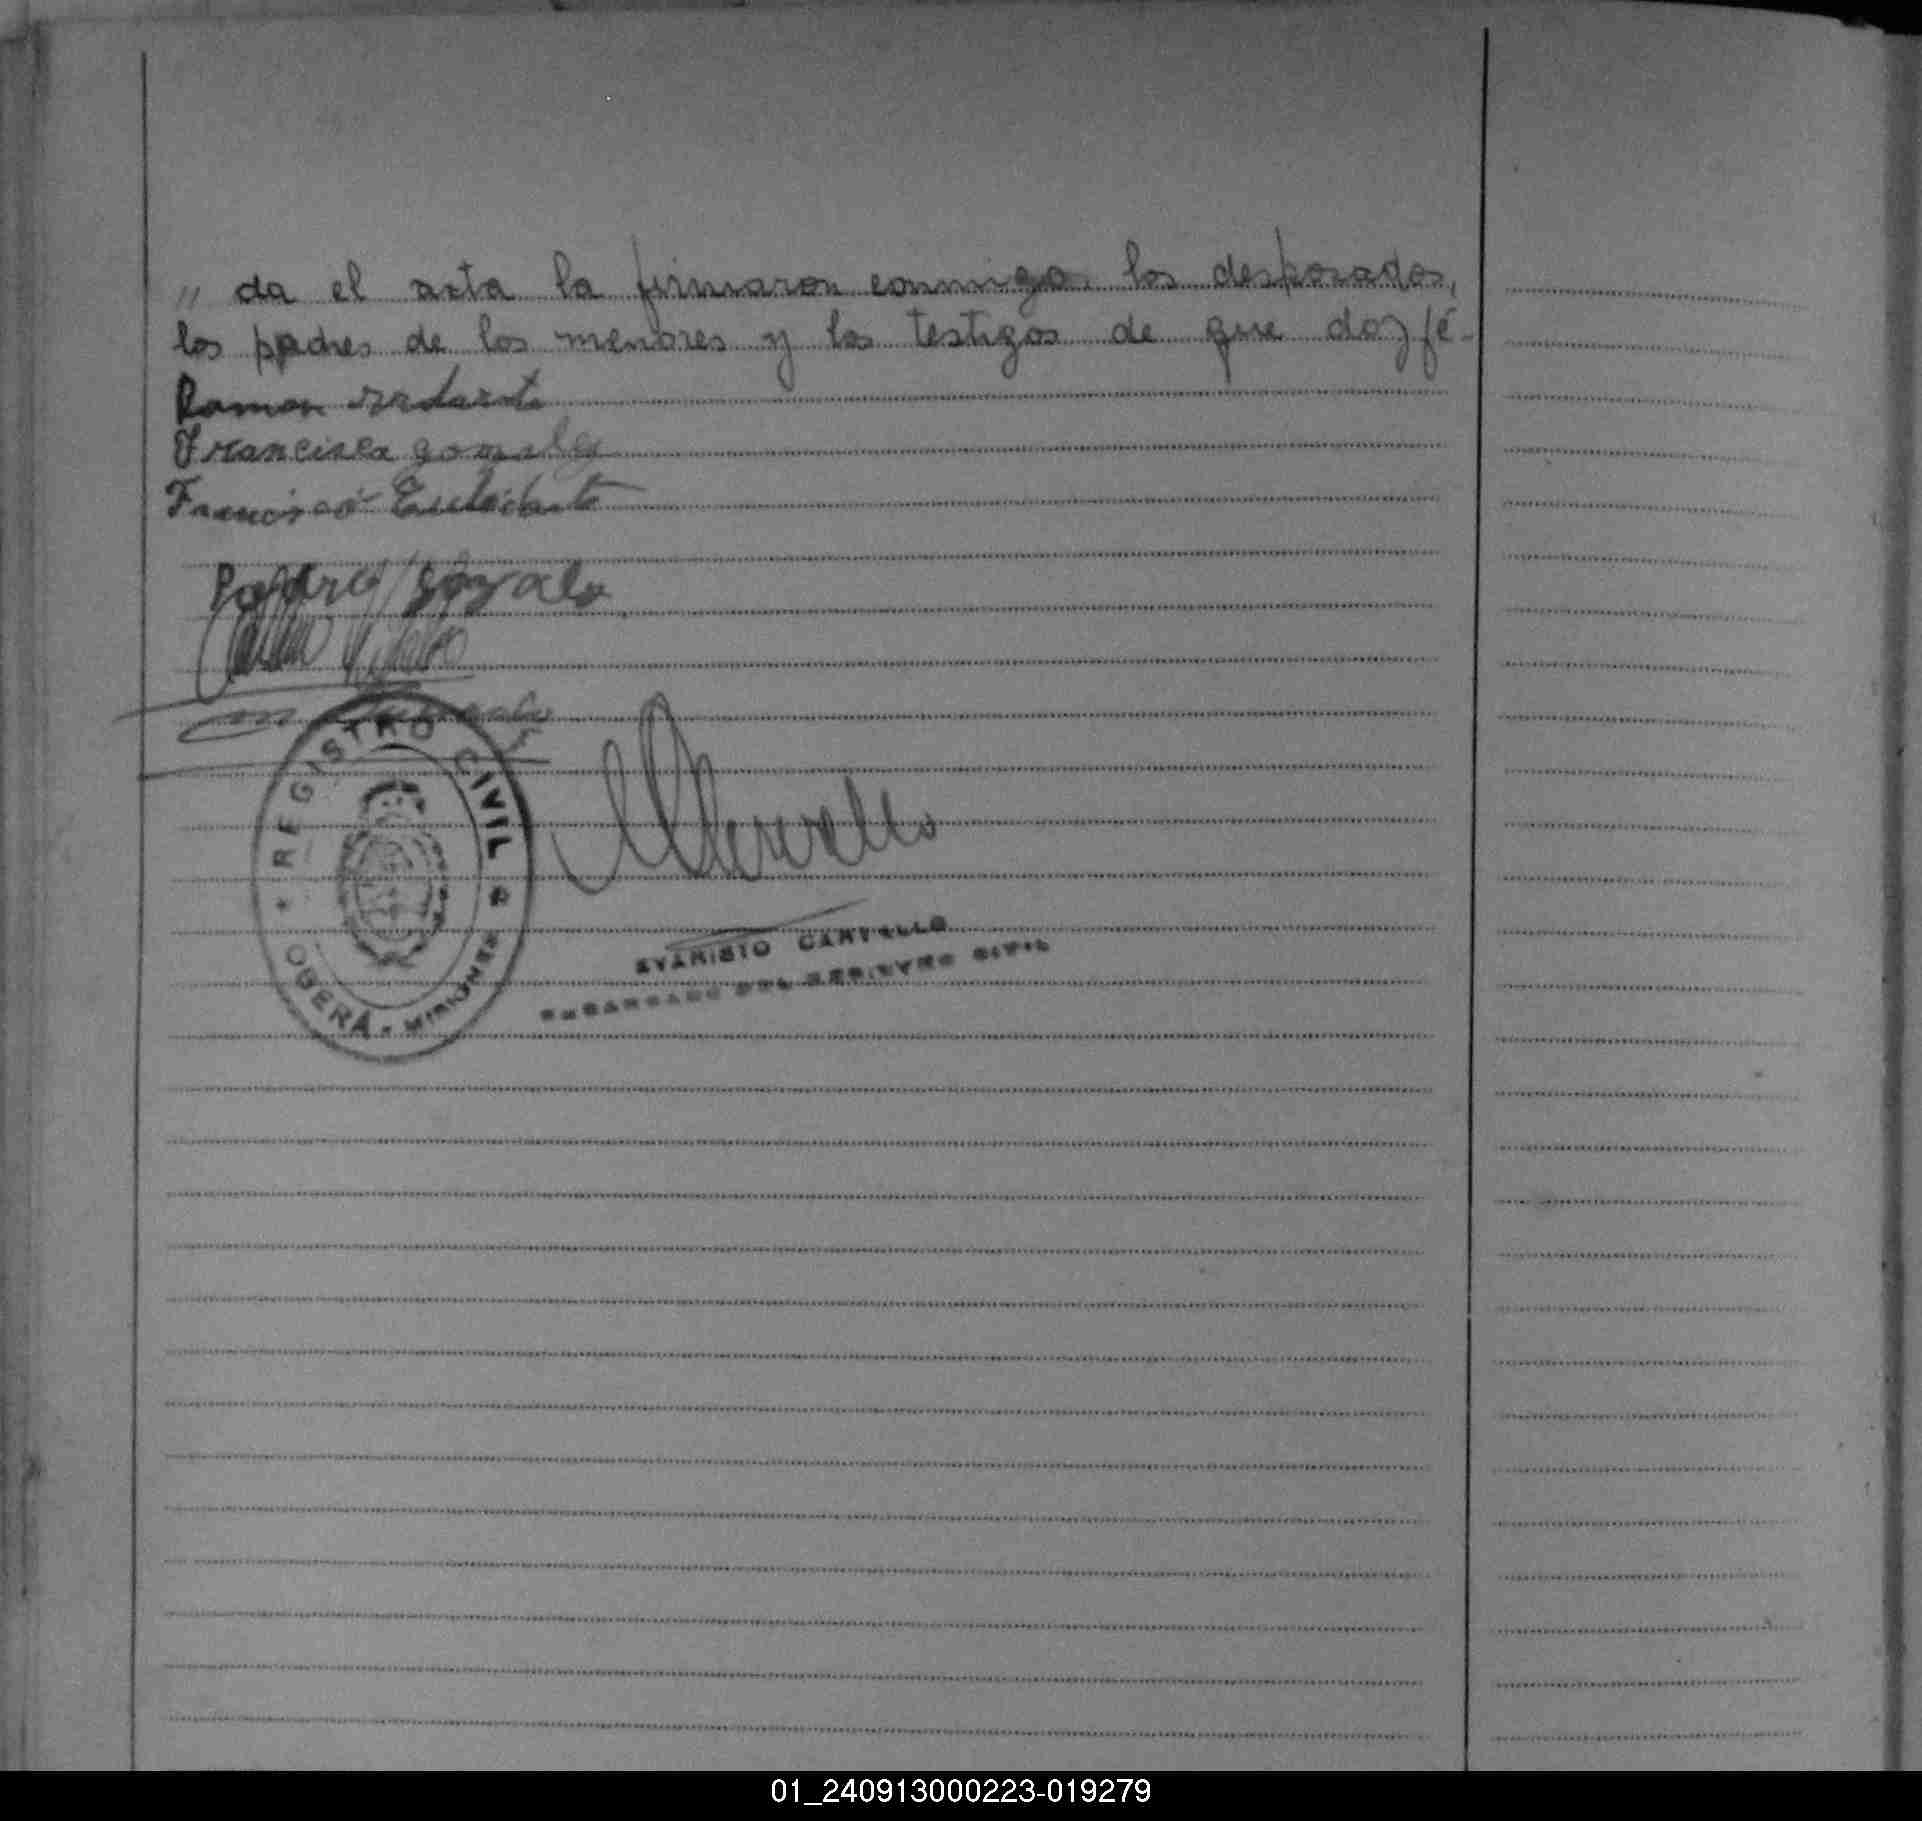 „ da el acta la firmaron conmigo, los desposados,
los padres de los menores y los testigos de que doy fé-
Ramon
Francisca gonzalez
Francisco
Pedro Gonzalo
REGISTRO CIVIL
OBERÁ - MISIONES
EVARISTO CARVALLO
ENCARGADO DEL REGISTRO CIVIL
01_240913000223-019279